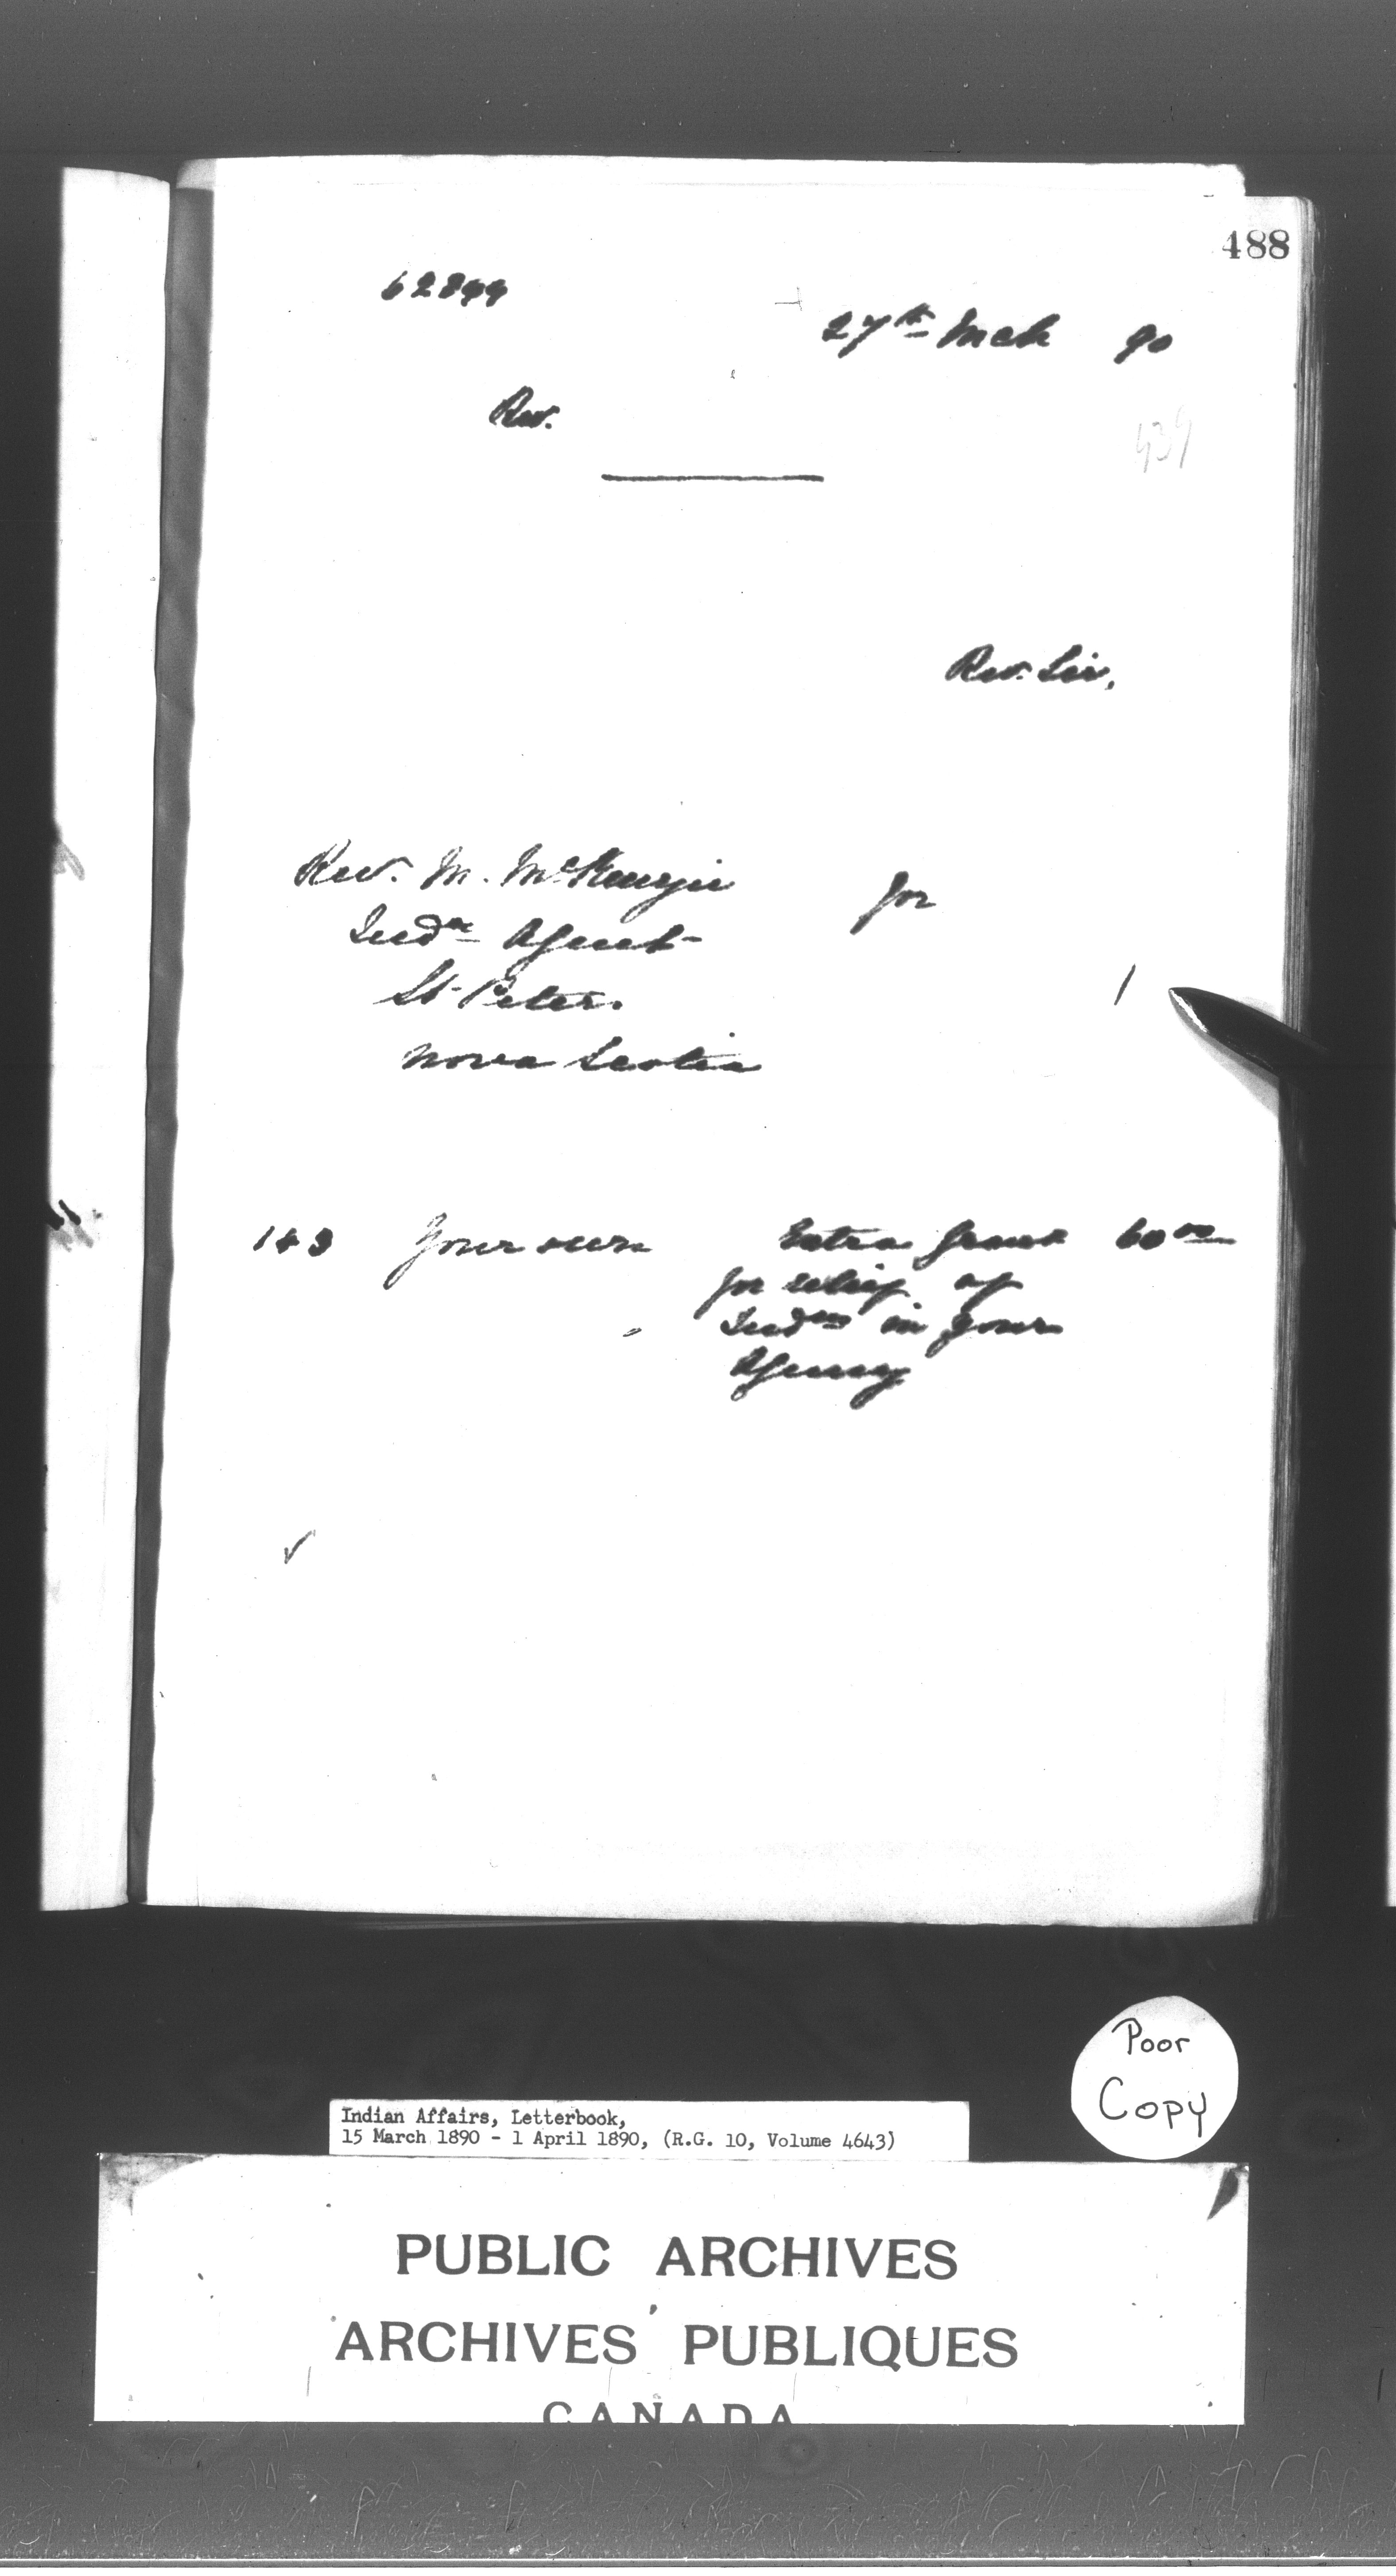 488
62899
27th Mch 90
Rev.
439
Rev. Sir,
Rev. M. McKenzie for
Indn Agent
St. Peters.
Nova Scotia
1
143 Your own Extra Grant 60 00
for relief of
Indns in your
Agency
Poor
Copy
Indian Affairs, Letterbook,
15 March 1890 - 1 April 1890, (R.G. 10, Volume 4643)
PUBLIC ARCHIVES
ARCHIVES PUBLIQUES
CANADA